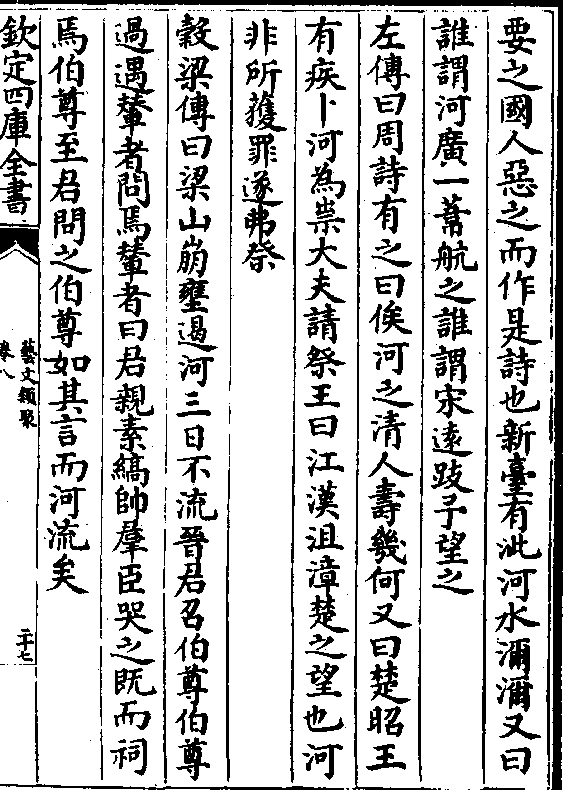 要之國人惡之而作是詩也新臺有泚河水瀰瀰又曰
誰謂河廣一葦航之誰謂宋遠跂予望之
左傳曰周詩有之曰俟河之清人壽幾何又曰楚昭王
有疾卜河為祟大夫請祭王曰江漢沮漳楚之望也河
非所獲罪遂弗祭
穀梁傳曰梁山崩壅遏河三日不流晉君召伯尊伯尊
過遇輦者問焉輦者曰君親素縞帥羣臣哭之既而祠
焉伯尊至君問之伯尊如其言而河流矣
欽定四庫全書
藝文類聚
卷八
二十七